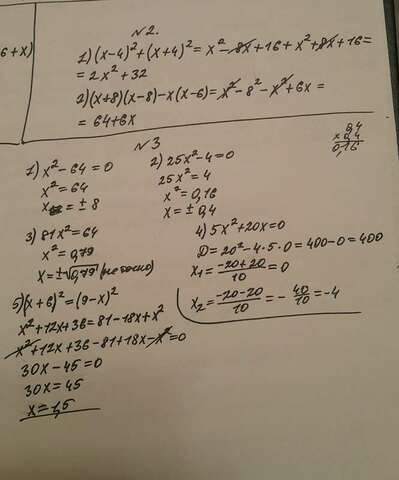 6+x)
№2.
1) (x-4)²+(x+4)² = x²-8x+16+x²+8x+16=
= 2x²+32
2) (x+8)(x-8)-x(x-6)=x²-8²-x²+6x=
= 64+6x
№3
1) x²-64=0
x²=64
x = ±8
2) 25x²-4=0
25x²=4
x²=0,16
x=±0,4
0,4
x 0,4
0,16
3) 81x²=64
x²=0,79
x=±√0,79 (не точно)
4) 5x²+20x=0
D=20²-4·5·0=400-0=400
x₁=(-20+20)/10=0
x₂=(-20-20)/10=-40/10=-4
5) (x+6)²=(9-x)²
x²+12x+36=81-18x+x²
x²+12x+36-81+18x-x²=0
30x-45=0
30x=45
x=1,5